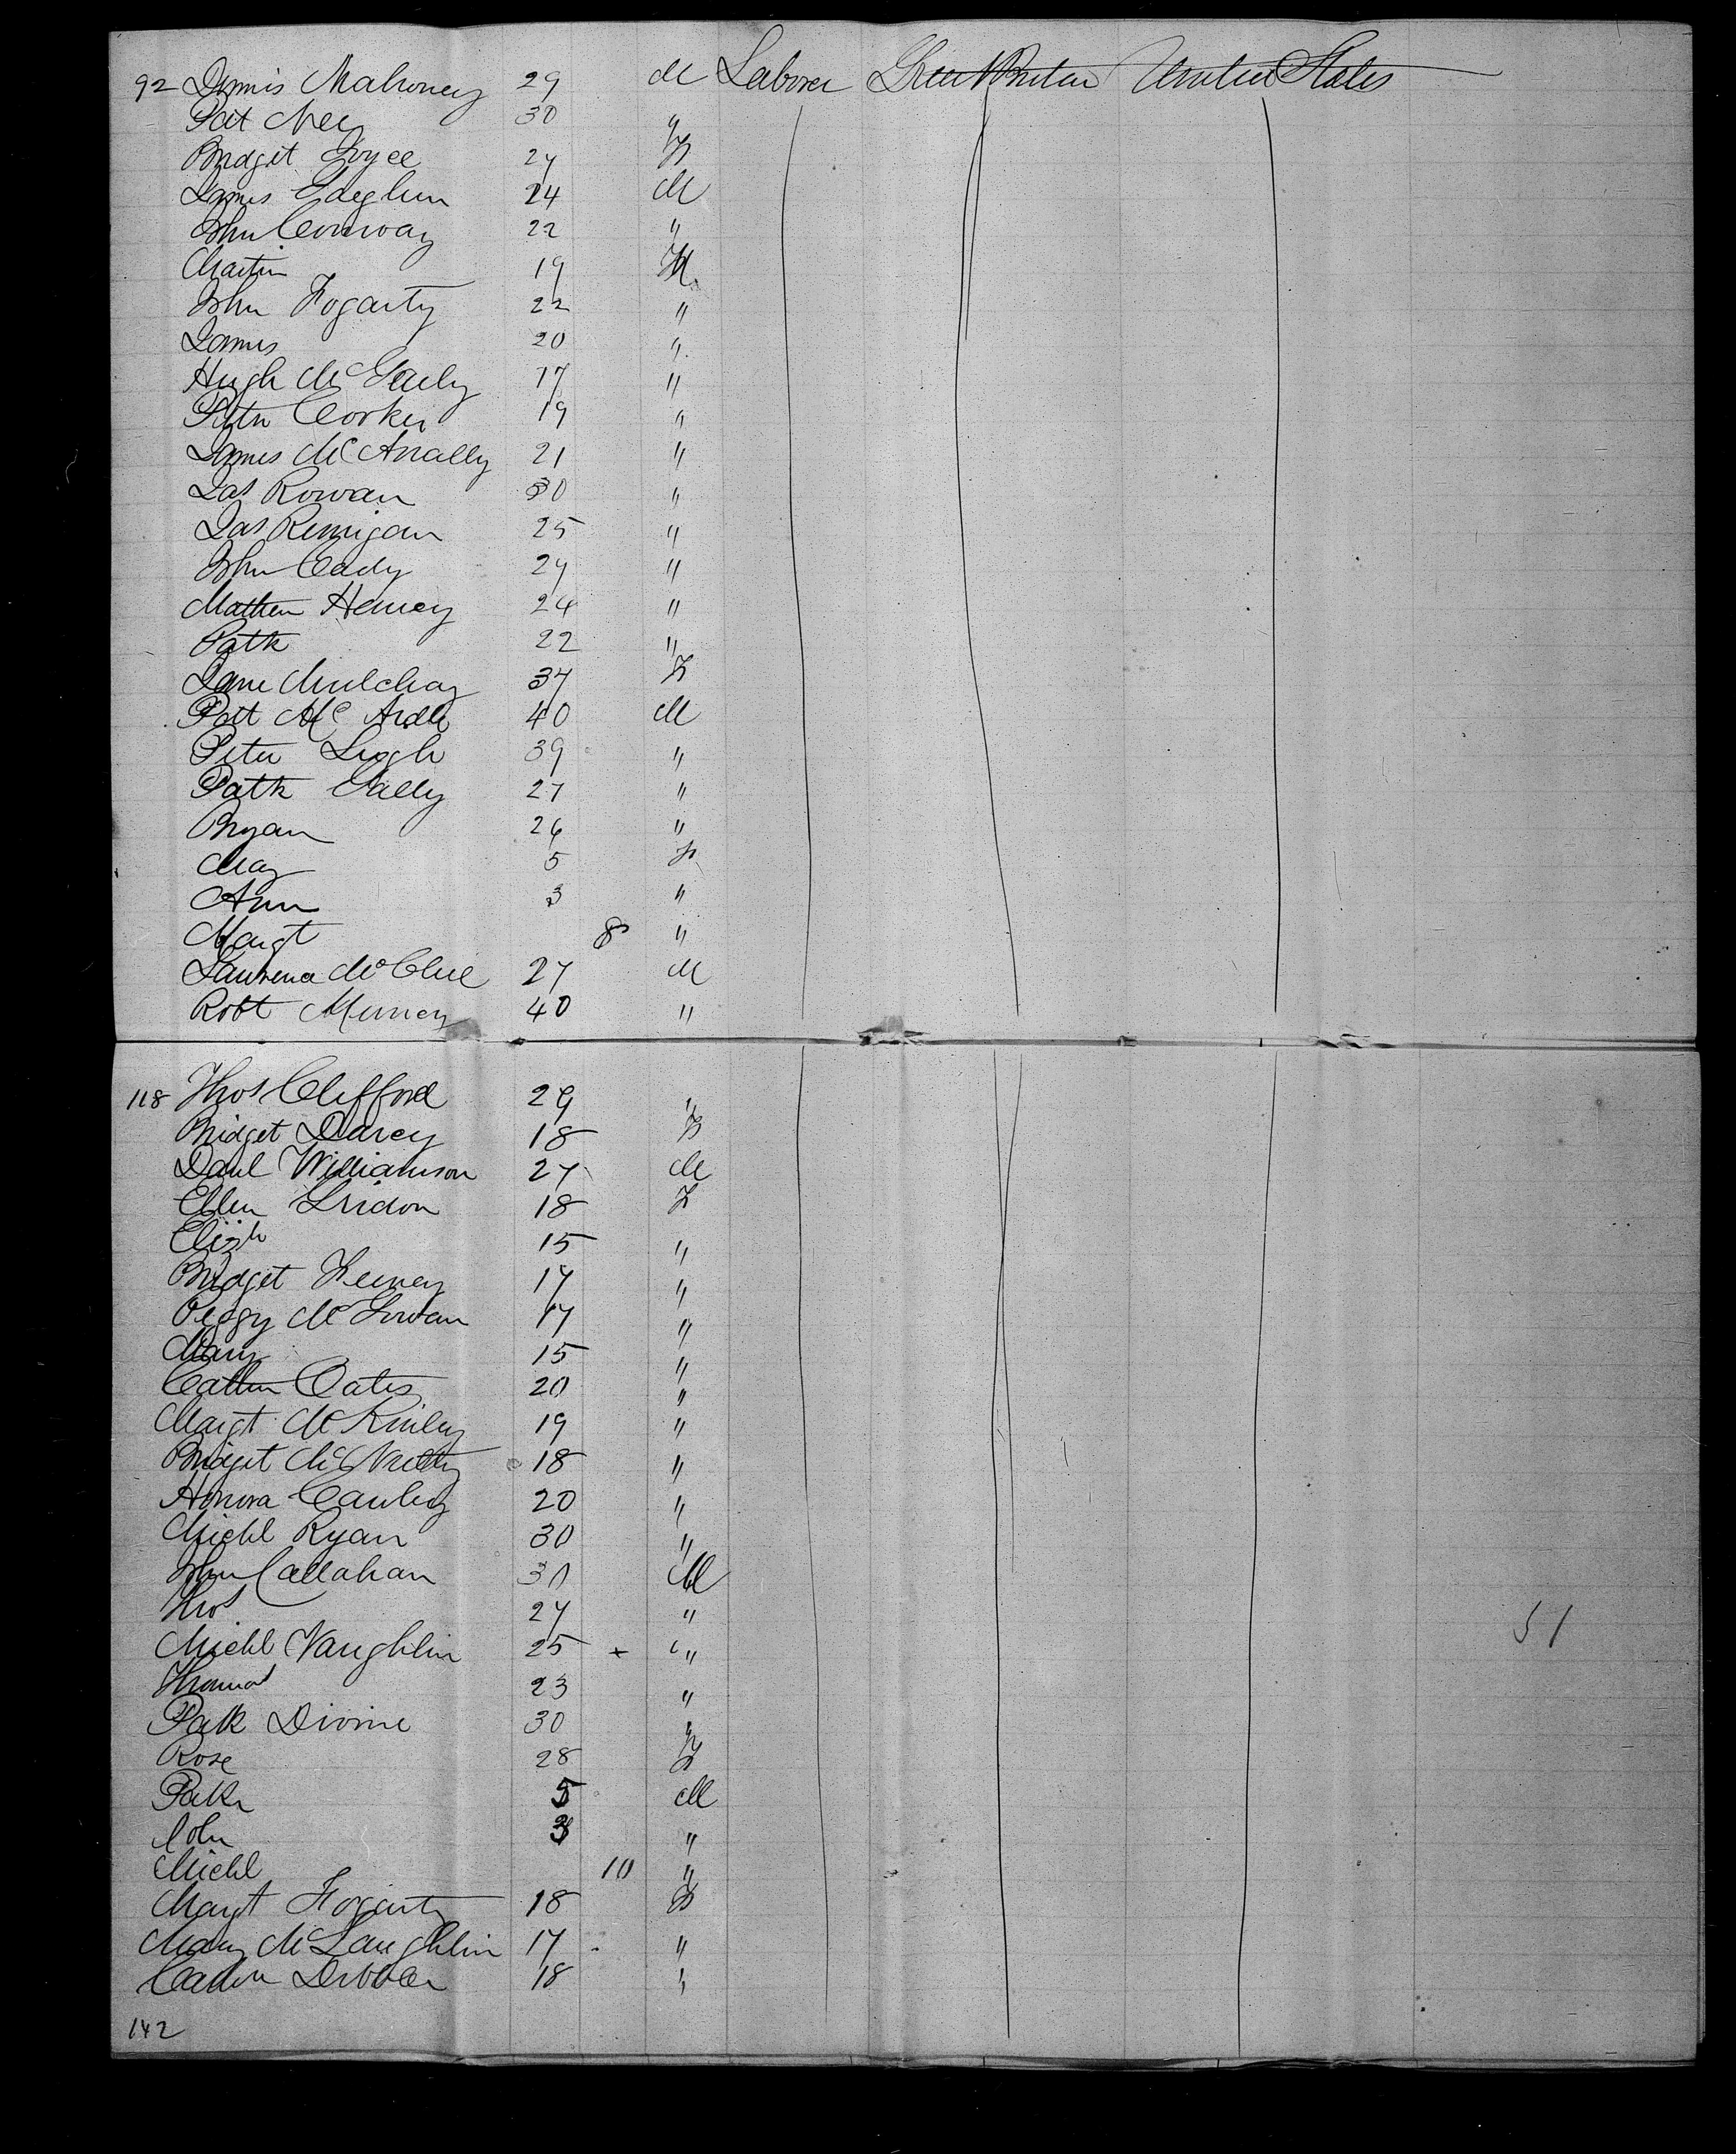 92 Dennis Mahoney 29 M Laborer Great Britain United States
Pat Nee 30 "
Bridget Joyce 24 F
James 24 M
John Conway 22 "
Martin 19 M
John Fogarty 22 "
James 20 "
Hugh Mc 17 "
Peter Corker 19 "
James McAnally 21 "
Jas Rowan 30 "
Jas Rennigan 25 "
John Cady 24 "
Mathew Henney 24 "
Patk 22 "
Jane Mulchay 34 F
Patt McArdle 40 M
Peter Leogh 39 "
Patk Cally 27 "
Bryan 26 "
May 5 F
Ann 3 "
Margt 8 "
Laurence McClue 27 M
Robt Murney 40 "
118 Thos Clifford 29 "
Bridget Darcy 18 F
Danl Williamson 27 M
Ellen Gridon 18 F
Elizh 15 "
Bridget Feeney 17 "
Peggy McGowan 17 "
Mary 15 "
Cathn Oates 20 "
Margt McKinley 19 "
Bridget McNulty 18 "
Honora Cauley 20 "
Michl Ryan 30 "
John Callahan 30 M
Thos 24 "
Michl Naughlin 25 x " 51
Thomas 23 "
Patk Divine 30 "
Rose 28 F
Patk 5 M
John 3 "
Michl 10 "
Margt Fogarty 18 F
Mary McLaughlin 17 "
Cathn 18 "
142